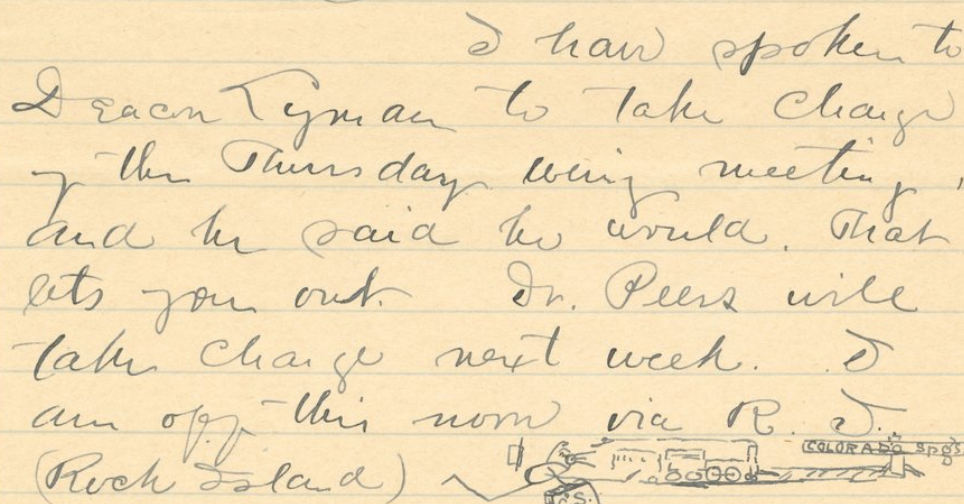 I have spoken to
Deacon Lyman to take charge
of the Thursday eving meeting,
and he said he would. That
lets you out. Dr. Peers will
take charge next week. I
am off this noon via R. I.
(Rock Island) COLORADO spgs.